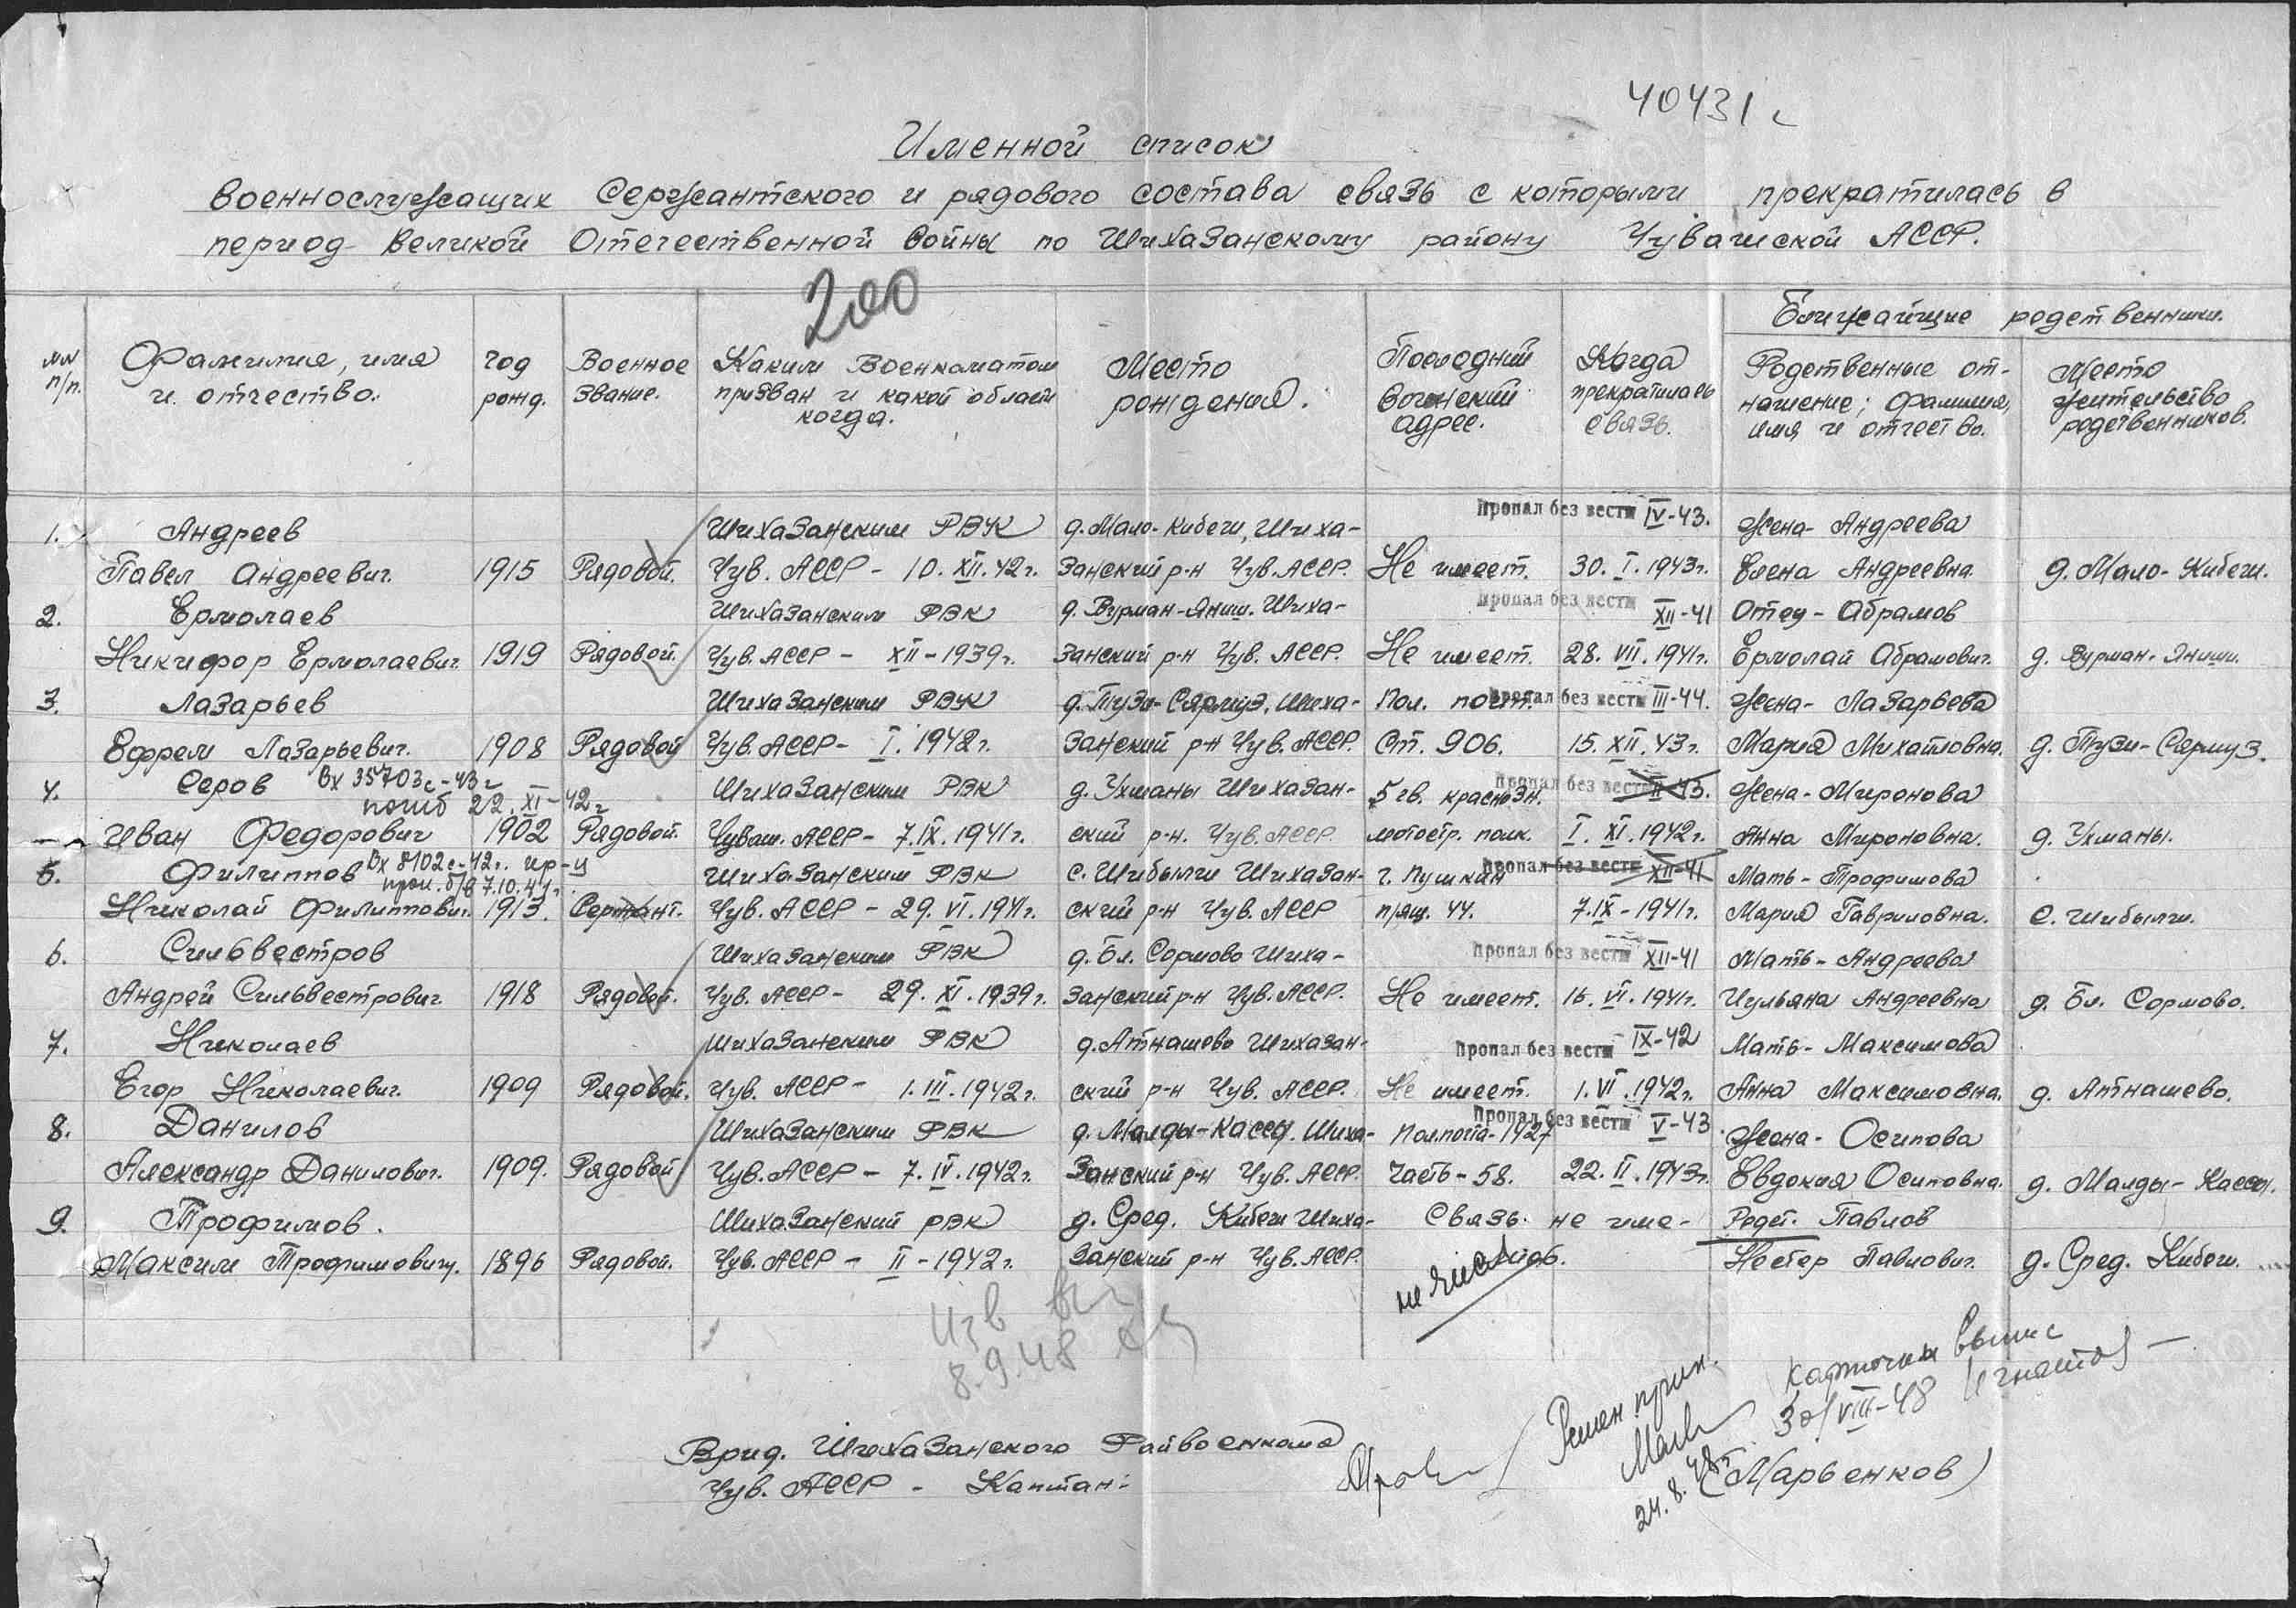 40431 с
Именной список
военнослужащих Сержантского и рядового состава связь с которыми прекратилась в
период Великой Отечественной войны по Шихазанскому району Чувашской АССР.
200
Ближайщие родственники.
№№ п/п.
Фамилия, имя и отчество.
Год рожд.
Военное звание.
Каким Военкоматом призван и какой области когда.
Место рождения.
Последний воинский адрес.
Когда прекратилась связь.
Родственные отношение; фамилия, имя и отчество.
Место жительство родственников.
1. Андреев Шихазанским РВК д. Мало-Кибечи, Шиха- Пропал без вести IV-43. Жена - Андреева
Павел Андреевич. 1915 Рядовой. Чув. АССР - 10.XII.42г. занский р-н Чув. АССР. Не имеет. 30.I.1943г. Елена Андреевна. д. Мало-Кибечи.
2. Ермолаев Шихазанским РВК д. Вурман-Яниш. Шиха- Пропал без вести XII-41 Отец - Абрамов
Никифор Ермолаевич. 1919 Рядовой. Чув. АССР - XII-1939г. занский р-н Чув. АССР. Не имеет. 28.VII.1941г. Ермолай Абрамович. д. Вурман-Яниши.
3. Лазарьев Шихазанским РВК д. Пузи-Сярмуз, Шиха- Пол. почт. Пропал без вести III-44. Жена - Лазарьева
Ефрем Лазарьевич. 1908 Рядовой Чув. АССР - I.1942г. занский р-н Чув. АССР. Ст. 906. 15.XII.43г. Мария Михайловна. д. Пузи-Сярмуз.
4. Серов Вх 35703с-43г Шихазанским РВК д. Ухманы Шихазан- 5 гв. краснозн. Пропал без вести II-43. Жена - Миронова
погиб 22.XI-42г
Иван Федорович 1902 Рядовой. Чуваш. АССР - 7.IX.1941г. ский р-н. Чув. АССР. мотостр. полк. I.XI.1942г. Анна Мироновна. д. Ухманы.
5. Филиппов Вх 8102с-42г. Шихазанским РВК с. Шибылги Шихазан- г. Пушкин Пропал без вести XII-41 Мать - Трофимова
проп. б/в 7.10.41г.
Николай Филиппович. 1913. Сержант. Чув. АССР - 29.VI.1941г. ский р-н Чув. АССР п/ящ. 44. 7.IX-1941г. Мария Гавриловна. с. Шибылги.
6. Сильвестров Шихазанским РВК д. Бл. Сормово Шиха- Пропал без вести XII-41 Мать - Андреева
Андрей Сильвестрович 1918 Рядовой. Чув. АССР - 29.XI.1939г. занский р-н Чув. АССР. Не имеет. 16.VI.1941г. Иульяна Андреевна д. Бл. Сормово.
7. Николаев Шихазанским РВК д. Атнашево Шихазан- Пропал без вести IX-42 Мать - Максимова
Егор Николаевич. 1909 Рядовой. Чув. АССР - 1.III.1942г. ский р-н Чув. АССР. Не имеет. 1.VI.1942г. Анна Максимовна. д. Атнашево.
8. Данилов Шихазанским РВК д. Малды-Кассы. Шиха- Пол.почта-1927 Пропал без вести V-43 Жена - Осипова
Александр Данилович. 1909. Рядовой Чув. АССР - 7.IV.1942г. занский р-н Чув. АССР. Часть-58. 22.II.1943г. Евдокия Осиповна. д. Малды-Кассы.
9. Трофимов. Шихазанский РВК д. Сред. Кибечи Шиха- Связь не име- Родст. Павлов
Максим Трофимович. 1896 Рядовой. Чув. АССР - II-1942г. занский р-н Чув. АССР. Нестер Павлович. д. Сред. Кибечи.
Изв
8.9.48
Карточки выпис
30/VIII-48 Игнатов
24.8.48г.
Врид. Шихазанского Райвоенкома
Чув. АССР - Капитан: (Марьенков)